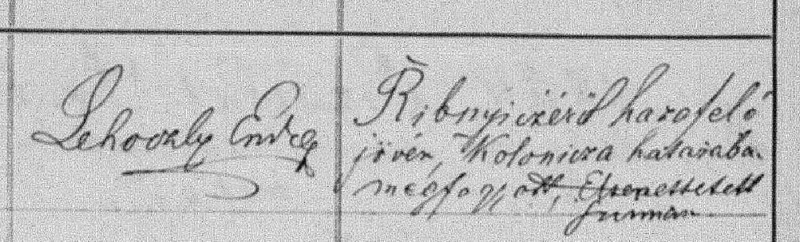 Lehoczky Endre
Ribnyiczéről hazafelé
jövén, Kolonicza határába.
megfagyott, Eltemettetett